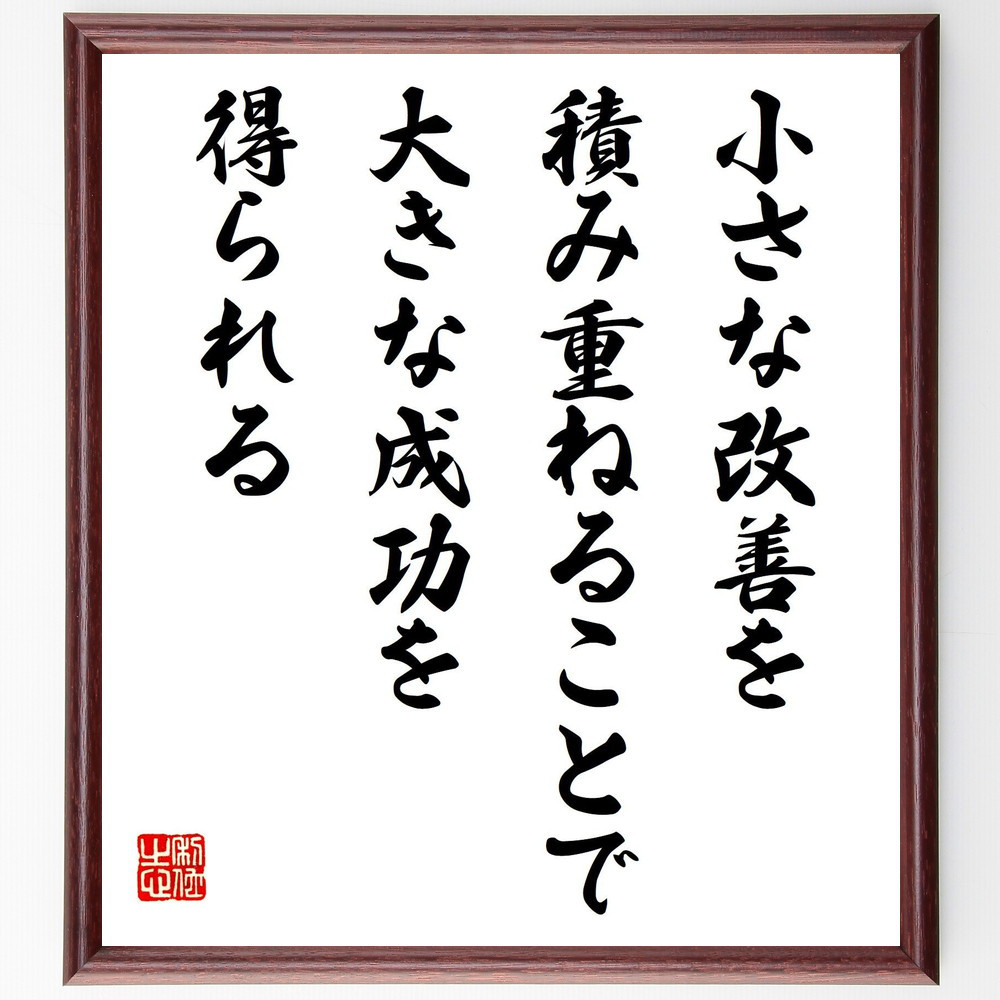 小さな改善を
積み重ねることで
大きな成功を
得られる